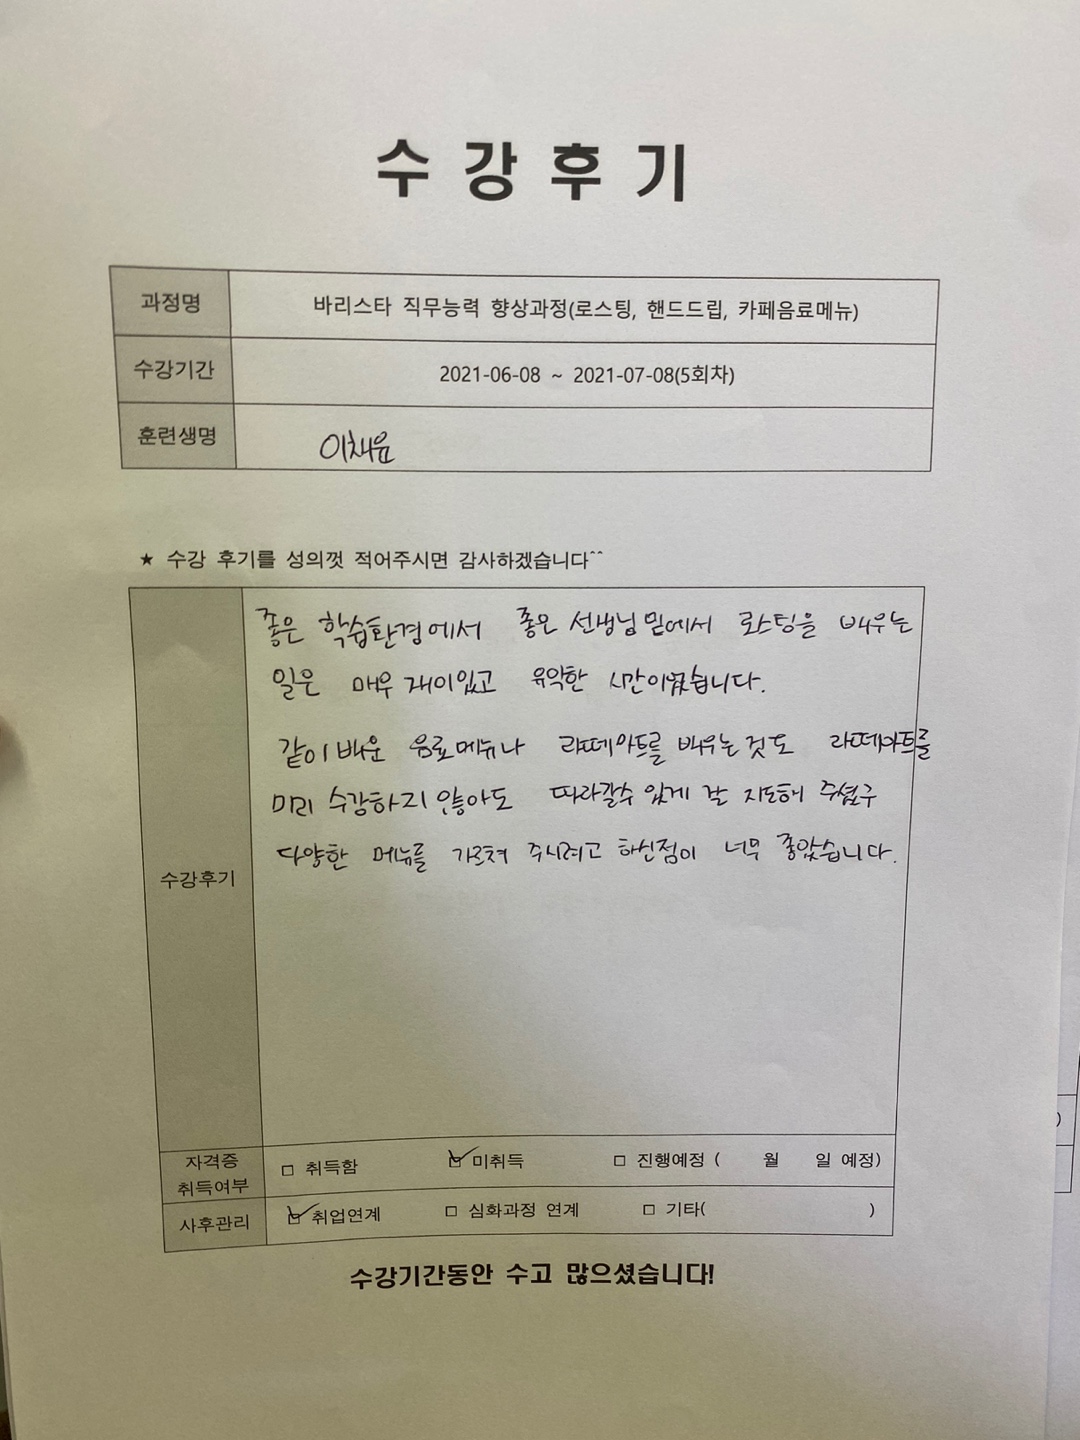 수강후기
과정명 바리스타 직무능력 향상과정(로스팅, 핸드드립, 카페음료메뉴)
수강기간 2021-06-08 ~ 2021-07-08(5회차)
훈련생명 이채윤
★ 수강 후기를 성의껏 적어주시면 감사하겠습니다^^
좋은 학습환경에서 좋은 선생님 밑에서 로스팅을 배우는
일은 매우 재미있고 유익한 시간이었습니다.
같이 배운 음료메뉴나 라떼아트를 배우는 것도 라떼아트를
미리 수강하지 않아도 따라갈수 있게 잘 지도해 주셨구
다양한 메뉴를 가르쳐 주시려고 하신점이 너무 좋았습니다.
수강후기
자격증 취득여부 □ 취득함 ☑ 미취득 □ 진행예정 ( 월 일 예정)
사후관리 ☑ 취업연계 □ 심화과정 연계 □ 기타( )
수강기간동안 수고 많으셨습니다!
)